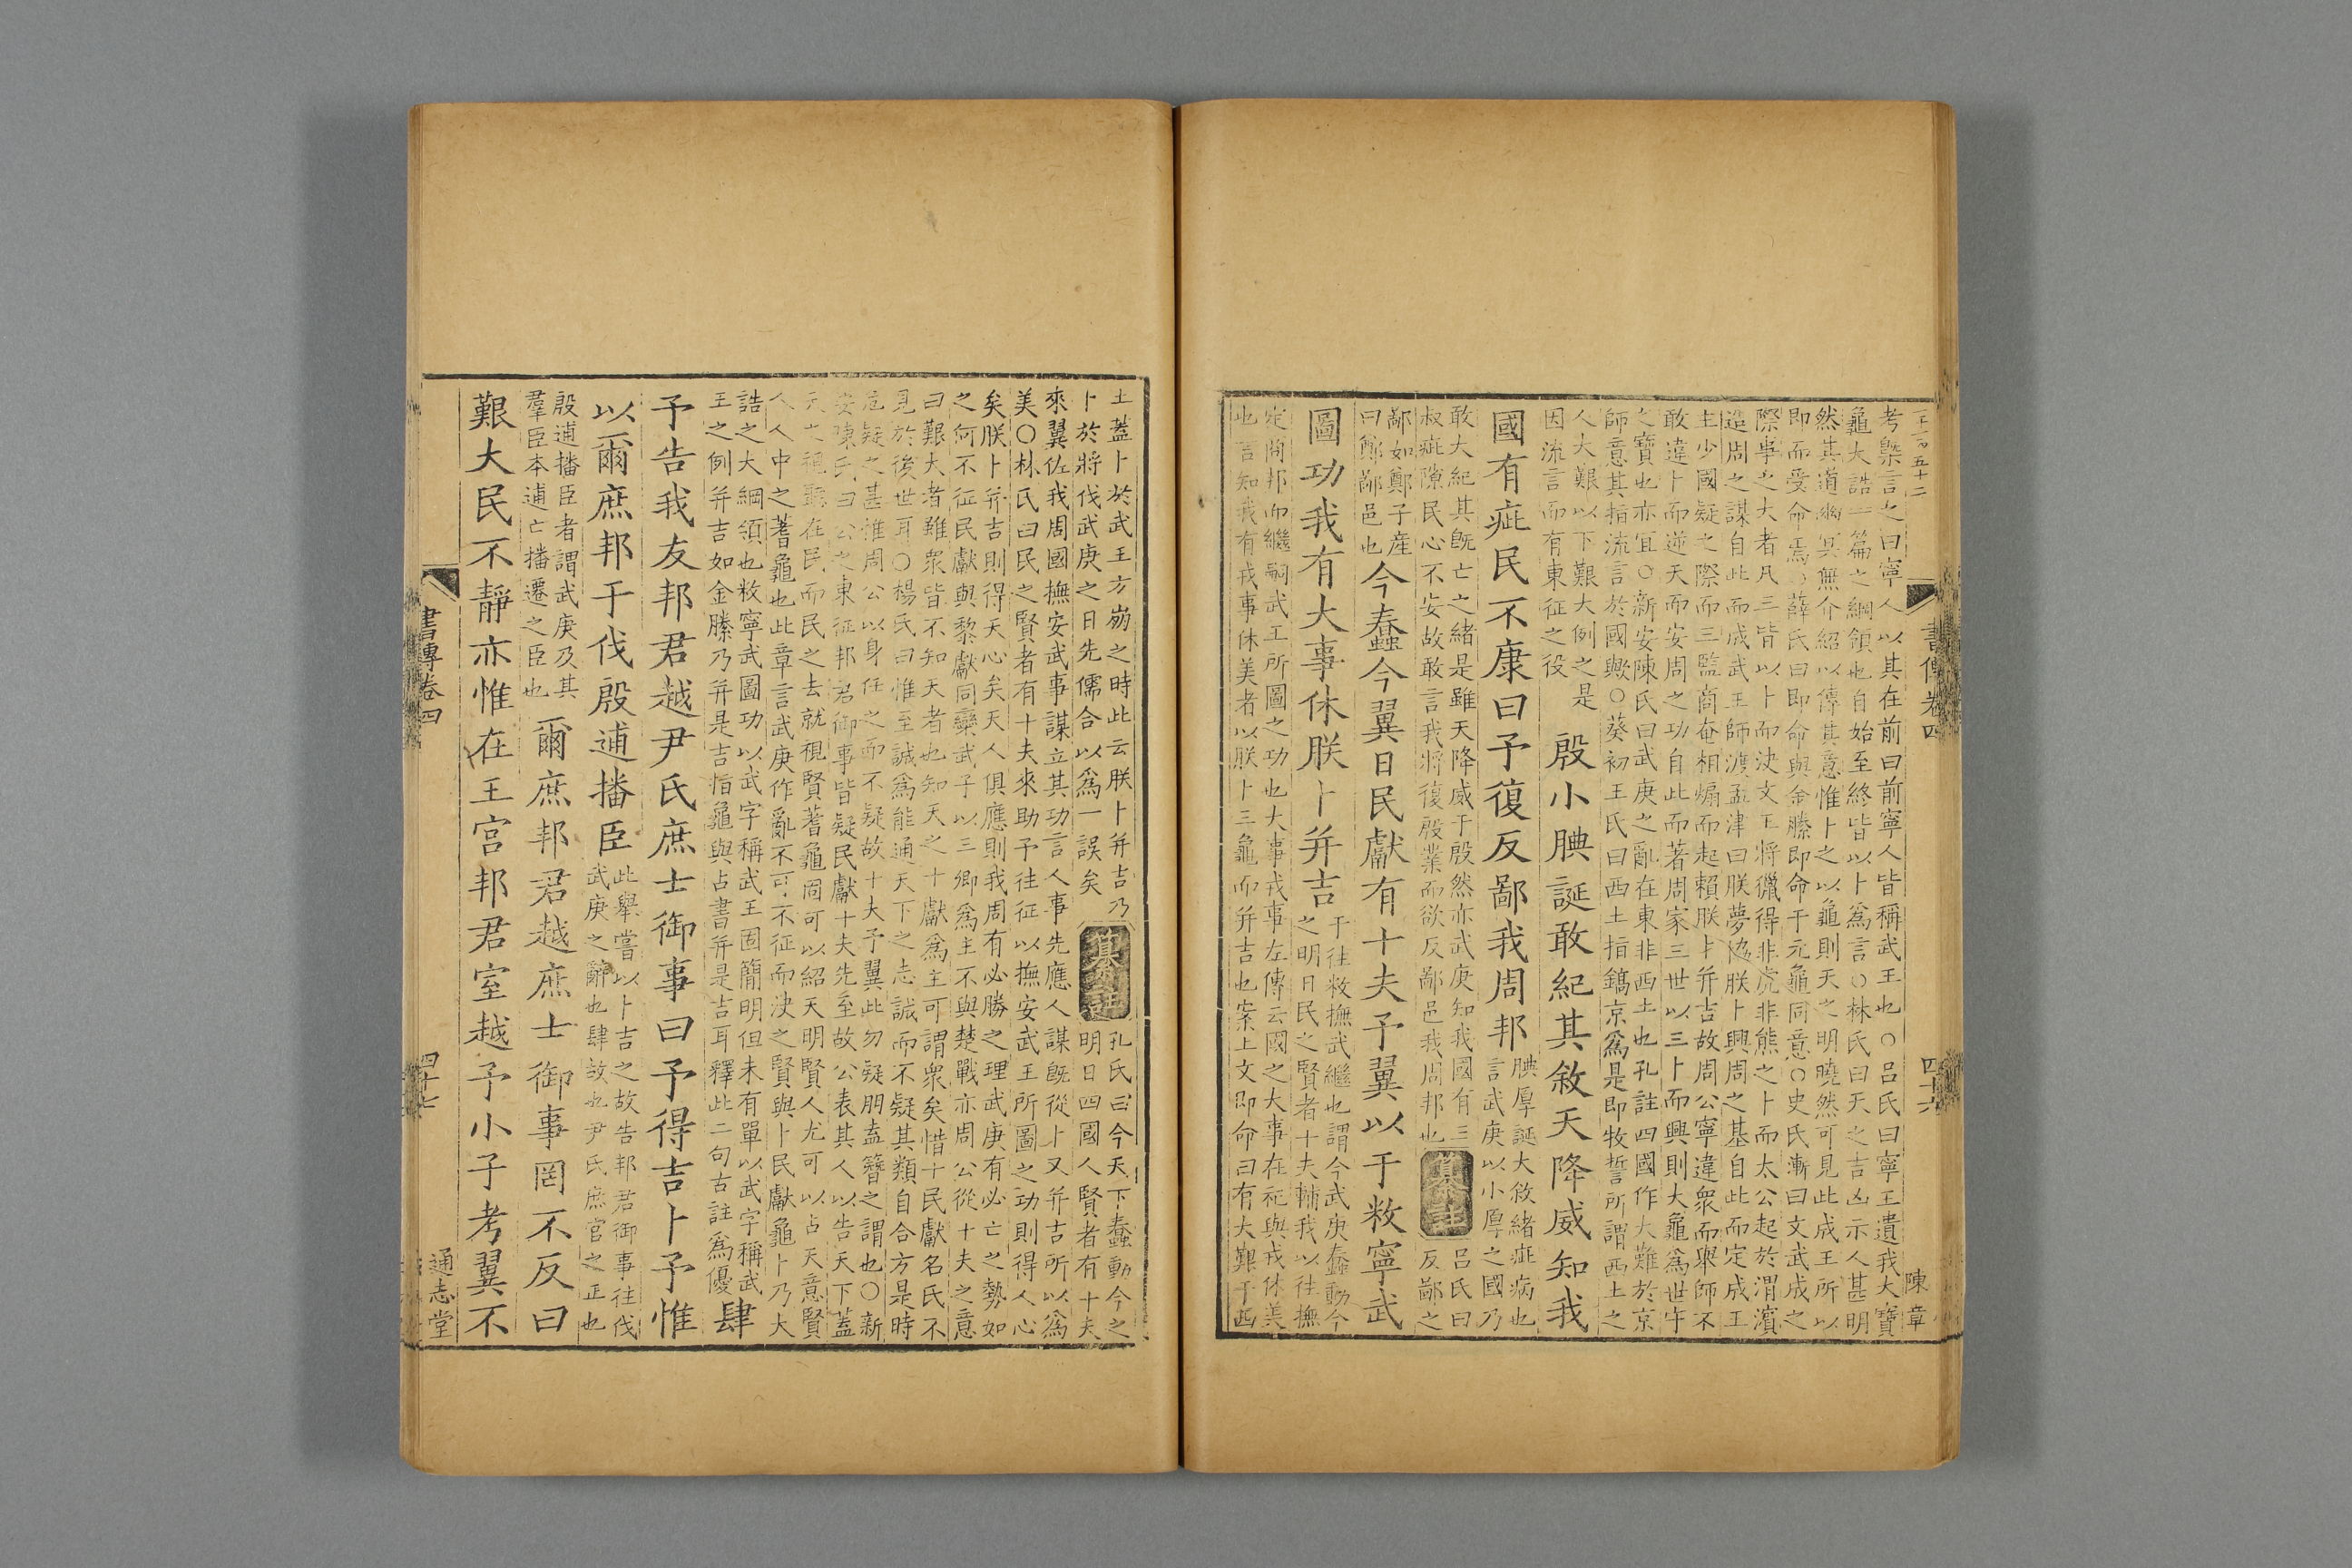 考槩言之曰寧人以其在前曰前寧人皆稱武王也○呂氏曰寧王遺我大寶
龜大誥一篇之綱領也自始至終皆以卜爲言○林氏曰天之吉凶示人甚明
然其道幽冥無介紹以傳其意惟卜之以龜則天之明曉然可見此成王所以
即而受命焉○薛氏曰即命與金縢即命于元龜同意○史氏漸曰文武成之
際事之大者凡三皆以卜而決文王將獵得非虎非熊之卜而太公起於渭濱
造周之謀自此而成武王師渡孟津曰朕夢協朕卜興周之基自此而定成王
主少國疑之際而三監商奄相煽而起賴朕卜并吉故周公寧違衆而舉師不
敢違卜而逆天而安周之功自此而著周家三世以三卜而興則大龜爲世守
之寶也亦宜○新安陳氏曰武庚之亂在東非西土也孔註四國作大難於京
師意其指流言於國歟○葵初王氏曰西土指鎬京爲是即牧誓所謂西土之
人大艱以下艱大例之是
因流言而有東征之役
殷小腆誕敢紀其敘天降威知我
國有疵民不康曰予復反鄙我周邦
腆厚誕大敘緒疵病也
言武庚以小厚之國乃
敢大紀其旣亡之緒是雖天降威于殷然亦武庚知我國有三
叔疵隙民心不安故敢言我將復殷業而欲反鄙邑我周邦也
纂註
呂氏曰
反鄙之
鄙如鄭子產
曰鄭鄙邑也
今蠢今翼日民獻有十夫予翼以于敉寧武
圖功我有大事休朕卜并吉
于往敉撫武繼也謂今武庚蠢動今
之明日民之賢者十夫輔我以往撫
定商邦而繼嗣武王所圖之功也大事戎事左傳云國之大事在祀與戎休美
也言知我有戎事休美者以朕卜三龜而并吉也案上文即命曰有大艱于西
書傳卷四
四十六
陳章
土蓋卜於武王方崩之時此云朕卜并吉乃
卜於將伐武庚之日先儒合以爲一誤矣
纂註
孔氏曰今天下蠢動今之
明日四國人賢者有十夫
來翼佐我周國撫安武事謀立其功言人事先應人謀旣從卜又并吉所以爲
美○林氏曰民之賢者有十夫來助予往征以撫安武王所圖之功則得人心
矣朕卜并吉則得天心矣天人俱應則我周有必勝之理武庚有必亡之勢如
之何不征民獻與黎獻同欒武子以三卿爲主不與楚戰亦周公從十夫之意
曰艱大者雖衆皆不知天者也知天之十獻爲主可謂衆矣惜十民獻名氏不
見於後世耳○楊氏曰惟至誠爲能通天下之志誠而不疑其類自合方是時
危疑之甚惟周公以身任之而不疑故十夫予翼此勿疑朋盍簪之謂也○新
安陳氏曰公之東征邦君御事皆疑民獻十夫先至故公表其人以告天下蓋
天之視聽在民而民之去就視賢蓍龜固可以紹天明賢人尤可以占天意賢
人人中之蓍龜也此章言武庚作亂不可不征而決之賢與卜民獻龜卜乃大
誥之大綱領也敉寧武圖功以武字稱武王固簡明但未有單以武字稱武
王之例并吉如金縢乃并是吉指龜與占書并是吉耳釋此二句古註爲優
肆
予告我友邦君越尹氏庶士御事曰予得吉卜予惟
以爾庶邦于伐殷逋播臣
此舉嘗以卜吉之故告邦君御事往伐
武庚之辭也肆故也尹氏庶官之正也
殷逋播臣者謂武庚及其
羣臣本逋亡播遷之臣也
爾庶邦君越庶士御事罔不反曰
艱大民不靜亦惟在王宮邦君室越予小子考翼不
書傳卷四
四十七
通志堂